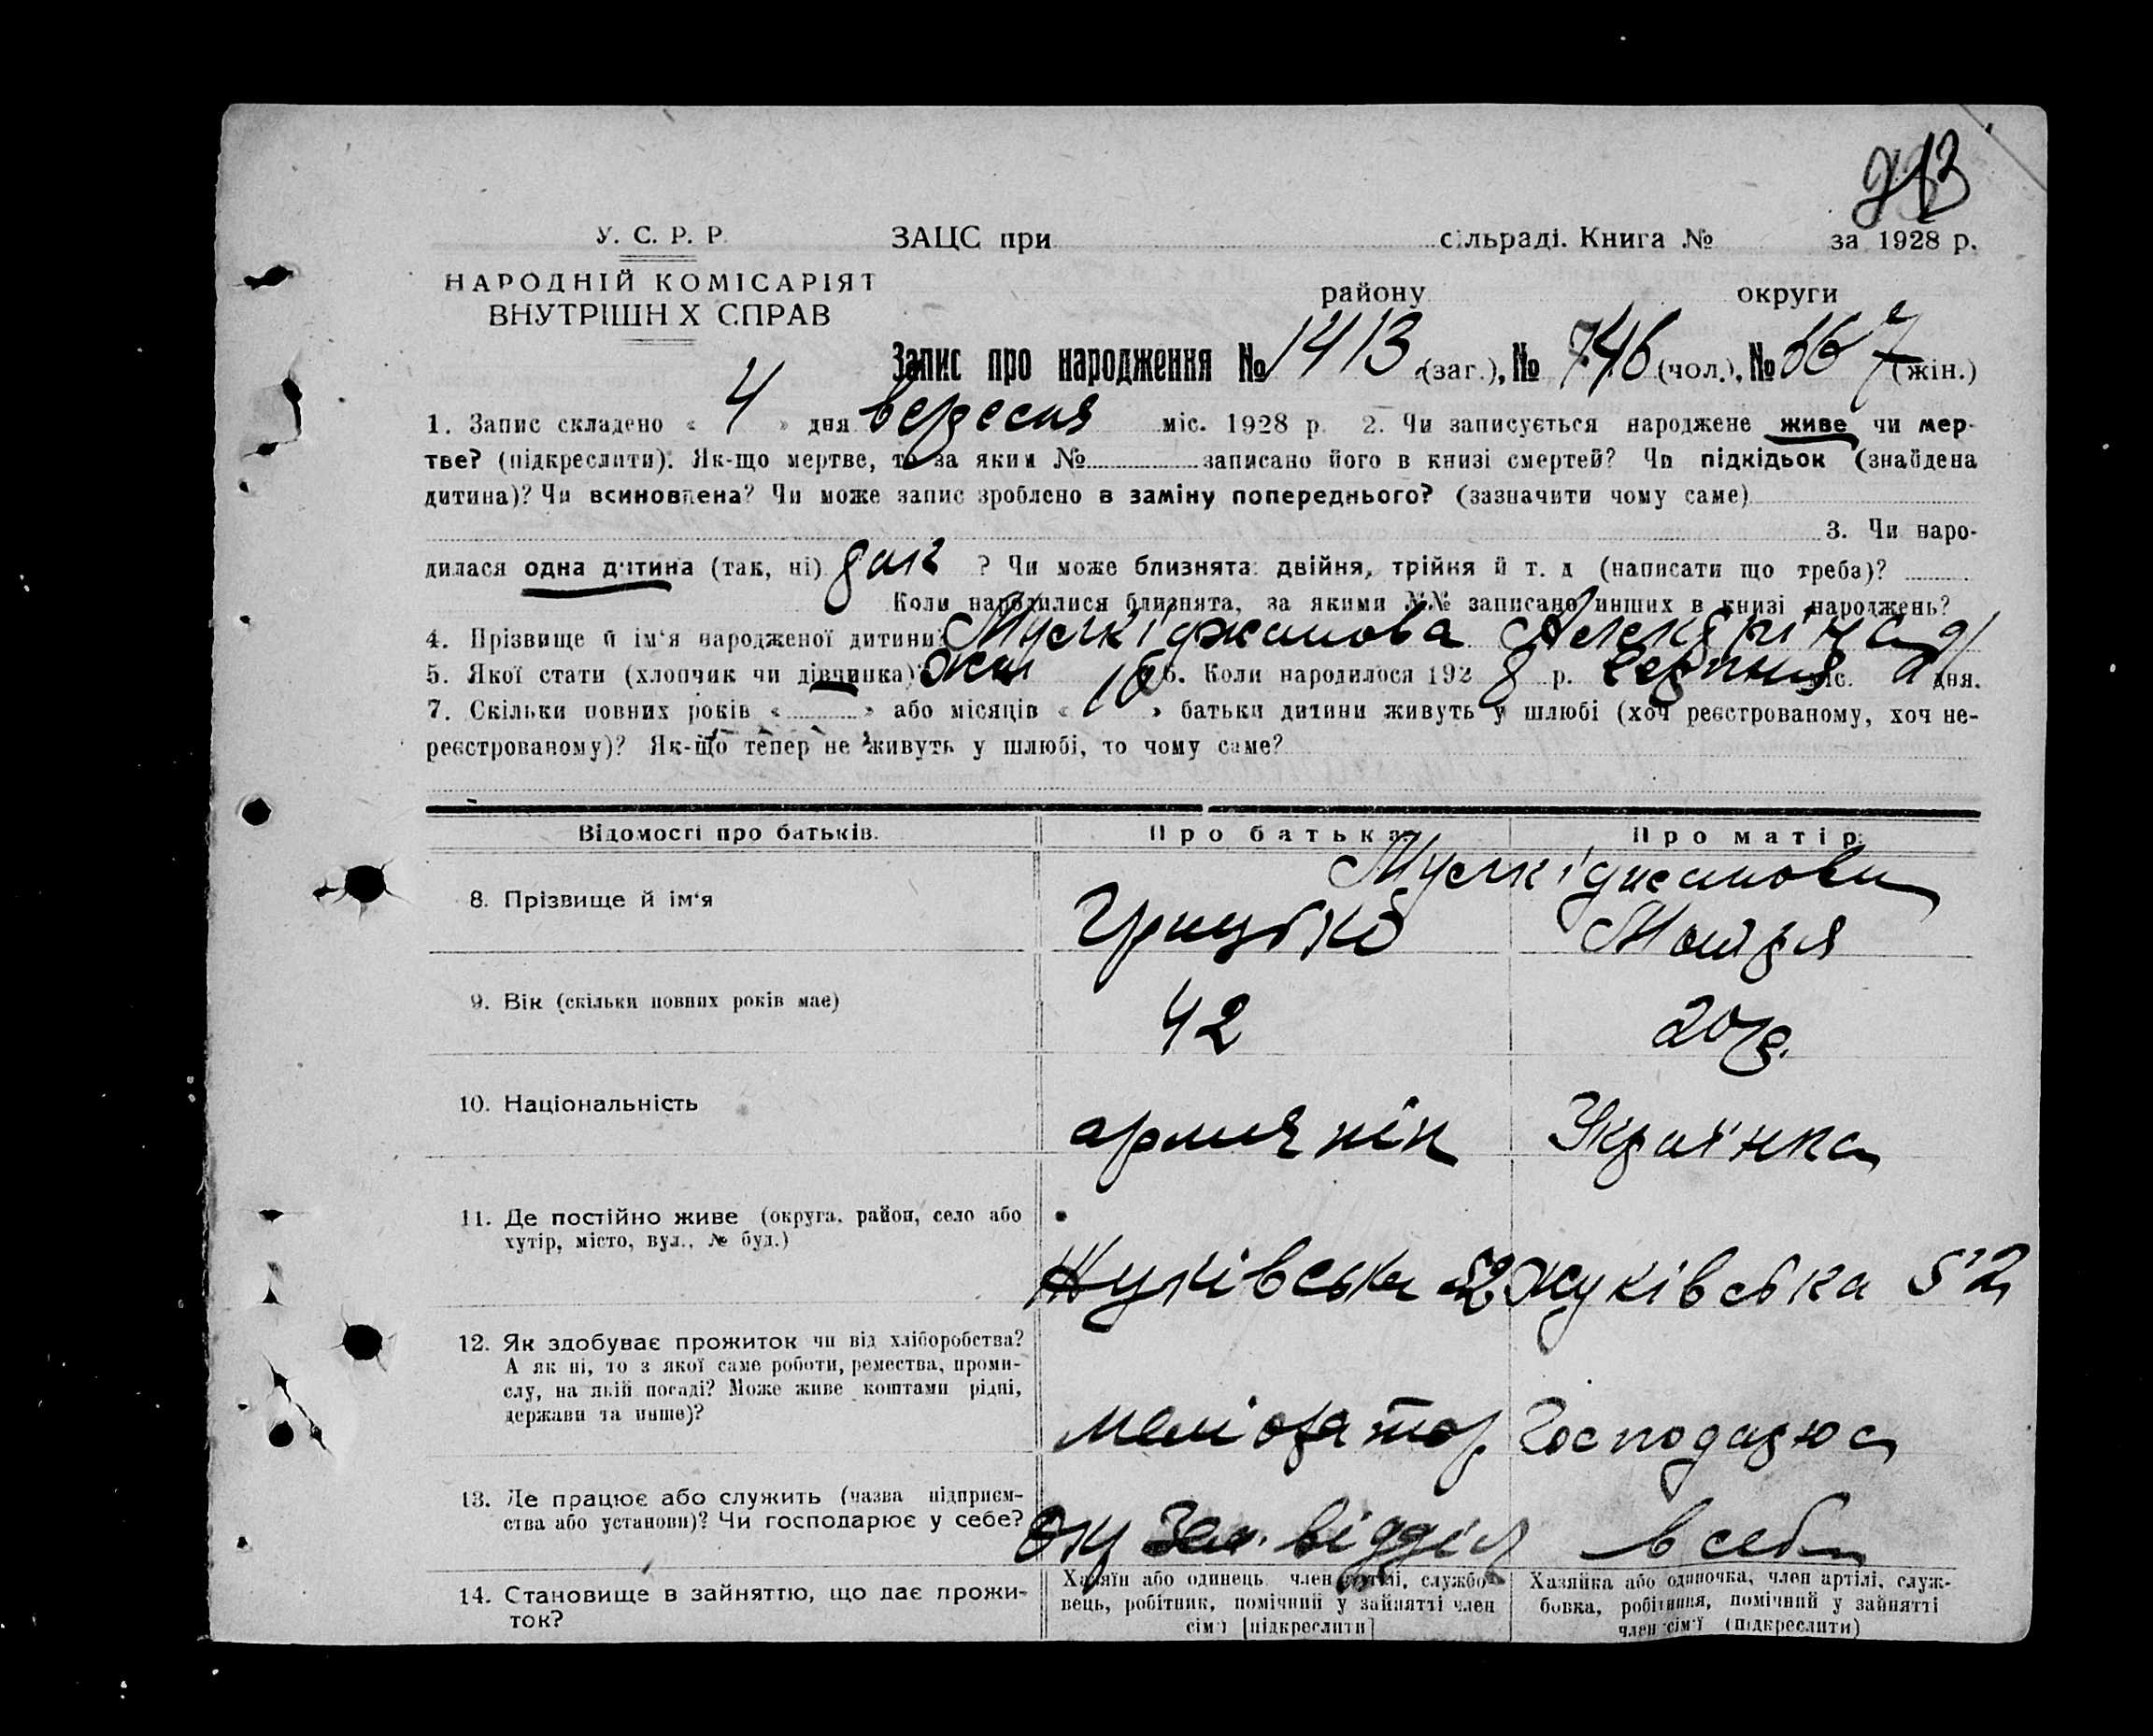 У. С. Р. Р.
НАРОДНІЙ КОМІСАРІЯТ
ВНУТРІШН Х СПРАВ
ЗАЦС при сільраді. Книга № за 1928 р.
району округи
Запис про народження № 1413 (заг.), № 746 (чол.), № 667 (жін.)
1. Запис складено « 4 » дня вересня міс. 1928 р. 2. Чи записується народжене живе чи мер-
тве? (підкреслити). Як-що мертве, то за яким № записано його в книзі смертей? Чи підкідьок (знайдена
дитина)? Чи всиновлена? Чи може запис зроблено в заміну попереднього? (зазначити чому саме)
3. Чи наро-
дилася одна дитина (так, ні) ? Чи може близнята: двійня, трійня й т. д (написати що треба)?
Коли народилися близнята, за якими №№ записано инших в книзі народжень?
4. Прізвище й ім'я народженої дитини:
5. Якої стати (хлопчик чи дівчинка)? жін 6. Коли народилося 1928 р. серпня міс. дня.
7. Скільки повних років « » або місяців « 10 » батьки дитини живуть у шлюбі (хоч реєстрованому, хоч не-
реєстрованому)? Як-що тепер не живуть у шлюбі, то чому саме?
Відомості про батьків. Про батька Про матір:
8. Прізвище й ім'я Грицько Мотря
9. Вік (скільки повних років має) 42 20
10. Національність армянін Українка
11. Де постійно живе (округа, район, село або
хутір, місто, вул., № буд.)
Жуківська 52 Жуківська 52
12. Як здобуває прожиток чи від хліборобства?
А як ні, то з якої саме роботи, ремества, проми-
слу, на якій посаді? Може живе коштами рідні,
держави та инше)?
меліоратор Господарює
13. Де працює або служить (назва підприєм-
ства або установи)? Чи господарює у себе?
Окр Зем. відділ в себе
14. Становище в зайняттю, що дає прожи-
ток?
Хазяїн або одинець, член артілі, службо-
вець, робітник, помічний у зайнятті член
сім'ї [підкреслити]
Хазяйка або одиночка, член артілі, служ-
бовка, робітниця, помічний у зайнятті
член сім'ї (підкреслити)